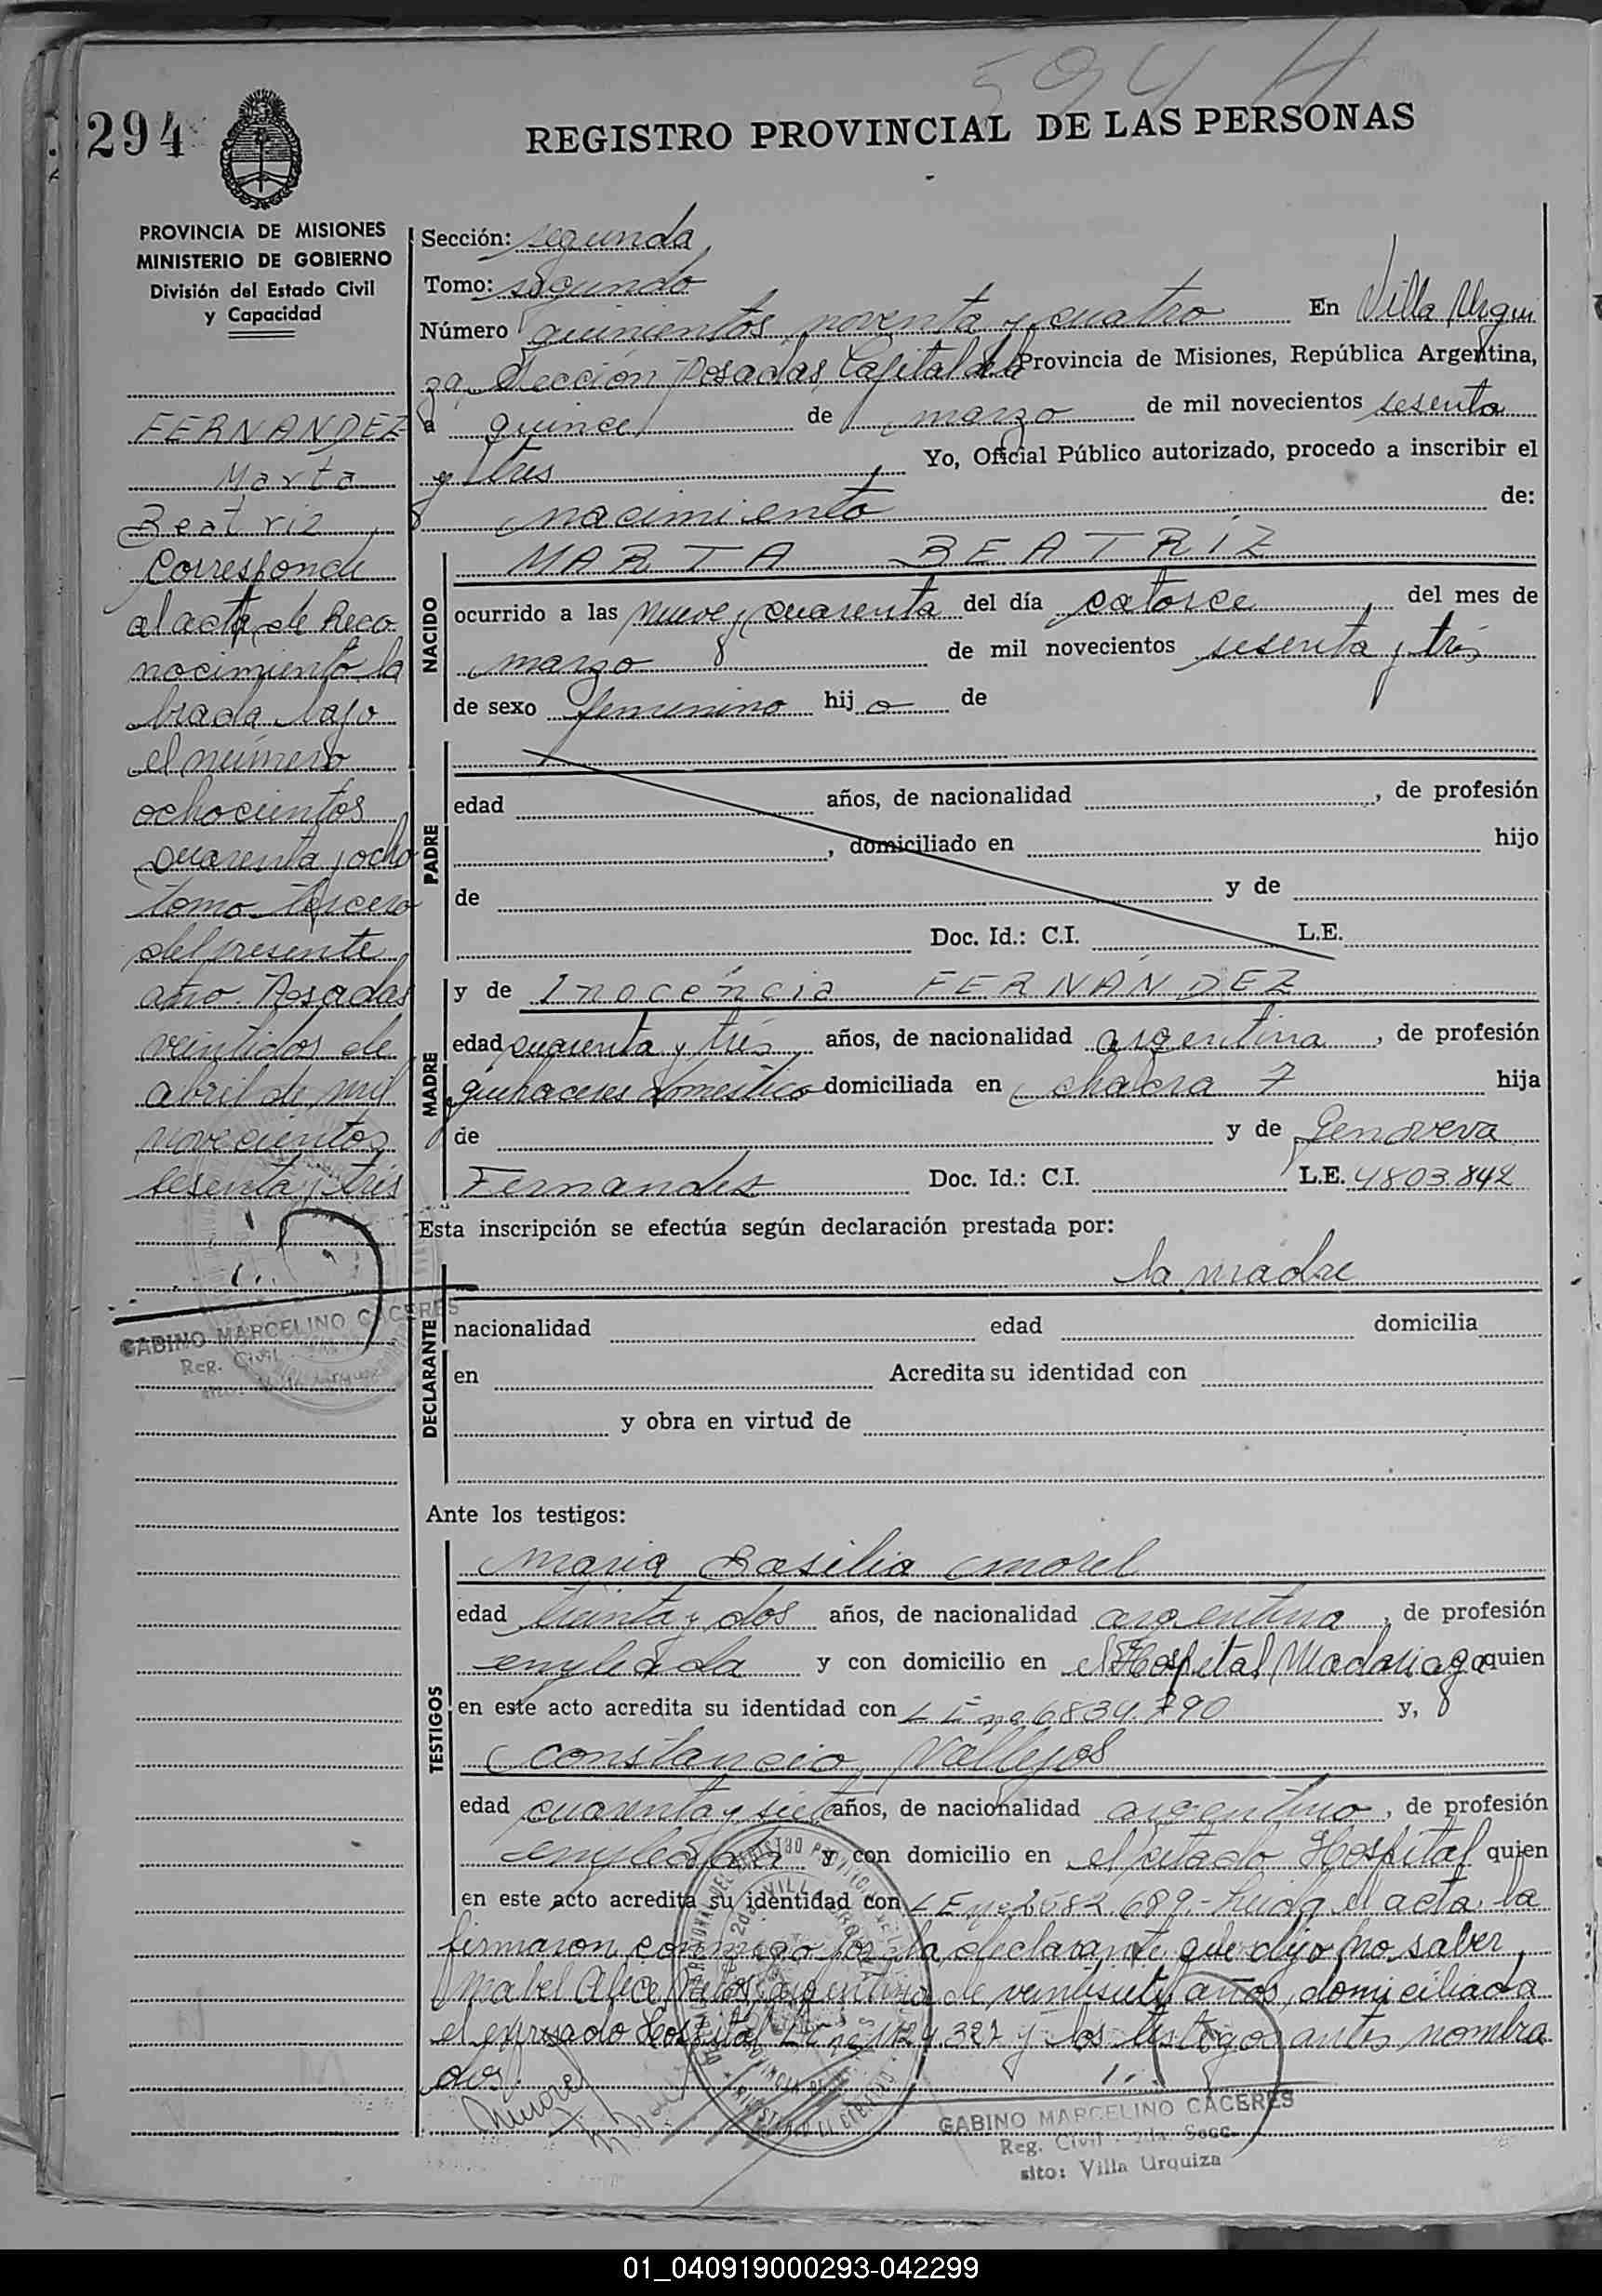 594 H
294
REGISTRO PROVINCIAL DE LAS PERSONAS
PROVINCIA DE MISIONES
MINISTERIO DE GOBIERNO
División del Estado Civil
y Capacidad
FERNANDEZ
Marta
Beatriz
Corresponde
al acta de Reco
nocimiento la
brada bajo
el número
ochocientos
cuarenta y ocho
tomo tercero
del presente
año. Posadas
veintidos de
abril de mil
novecientos
sesenta y tres
GABINO MARCELINO CACERES
Reg. Civil
Sección: segunda
Tomo: segundo
Número quinientos noventa y cuatro En Villa Urqui
za, Sección Posadas, Capital de la Provincia de Misiones, República Argentina,
a quince de marzo de mil novecientos sesenta
y tres Yo, Oficial Público autorizado, procedo a inscribir el
nacimiento de:
NACIDO
MARTA BEATRÍZ
ocurrido a las nueve y cuarenta del día catorce del mes de
marzo de mil novecientos sesenta y tres
de sexo femenino hij a de
PADRE
edad años, de nacionalidad , de profesión
, domiciliado en hijo
de y de
Doc. Id.: C.I. L.E.
MADRE
y de Inocéncia FERNÁNDEZ
edad cuarenta y tres años, de nacionalidad argentina , de profesión
quehaceres domestico domiciliada en chacra 7 hija
de y de Genoveva
Fernandez Doc. Id.: C.I. L.E. 4803.842
Esta inscripción se efectúa según declaración prestada por:
la madre
DECLARANTE
nacionalidad edad domicilia
en Acredita su identidad con
y obra en virtud de
Ante los testigos:
TESTIGOS
Maria Basilia Morel
edad treinta y dos años, de nacionalidad argentina , de profesión
empleada y con domicilio en el Hospital Madariaga quien
en este acto acredita su identidad con L E nº 6834.790 y,
Constancio Vallejos
edad cuarenta y siete años, de nacionalidad argentino , de profesión
empleado y con domicilio en el citado Hospital quien
en este acto acredita su identidad con L E nº 2582.689.- Leida el acta, la
firmaron conmigo por la declarante que dijo no saber,
Mabel Alice argentina de veintisiete años, domiciliada
el expresado Hospital y los testigos antes nombra
dos.
GABINO MARCELINO CACERES
Reg. Civil - 2da. Secc.
sito: Villa Urquiza
01_040919000293-042299